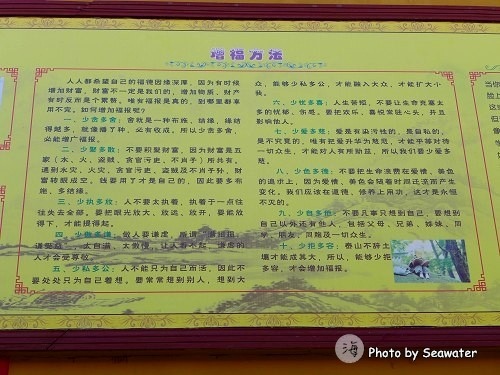 增福方法
人人都希望自己的福德因缘深厚，因为有时候
增加财富，财富不一定是我们的，增加物质，财产
有时反而是个累赘，唯有福报是真的，到哪里都享
用不完。如何增加福报呢？
一、少贪多舍：舍就是一种布施，结缘，缘结
得越多，就像播了种，必有收成，所以少贪多舍，
必能增广福报。
二、少聚多散：不要积聚财富，因为财富是五
家（水、火、盗贼、贪官污吏、不肖子）所共有，
遇到水灾、火灾、贪官污吏、盗贼及不肖子孙，财
富转眼成空，钱要用了才是自己的，因此要多布
施、多结缘。
三、少执多放：人不要太执着，执着于一点往
往失去全部。要把眼光放大，放远，放开，要能放
得下，才能提得起。
四、少傲多谦：做人要谦虚，所谓“满招损，
谦受益”，太自满、太傲慢，让人看不起，谦虚的
人才会受尊敬。
五、少私多公：人不能只为自己而活，因此不
要处处只为自己着想，要常常想到别人，想到大
众，能够少私多公，才能融入大众，才能扩大小
我。
六、少忧多喜：人生苦短，不要让生命负载太
多的忧郁、伤悲，要把欢乐、喜悦常驻心头，并且
影响他人。
七、少爱多慈：爱是有染污性的，是自私的，
是不究竟的，唯有把爱升华为慈悲，才能平等对待
一切众生，才能对人有所助益，所以我们要少爱多
慈。
八、少色多德：不要把生命浪费在爱情、美色
的追求上，因为爱情、美色会随着时间迁流而产生
变化，我们应该在道德、修养上用功，这才是永恒
不灭的。
九、少自多他：不要凡事只想到自己，要想到
自己以外还有他人，包括父母、兄弟、姊妹、同
学、朋友、同胞及一切众生。
十、少拒多容：泰山不辞土
壤才能成其大，所以，能够少拒
多容，才会增加福报。
海 Photo by Seawater